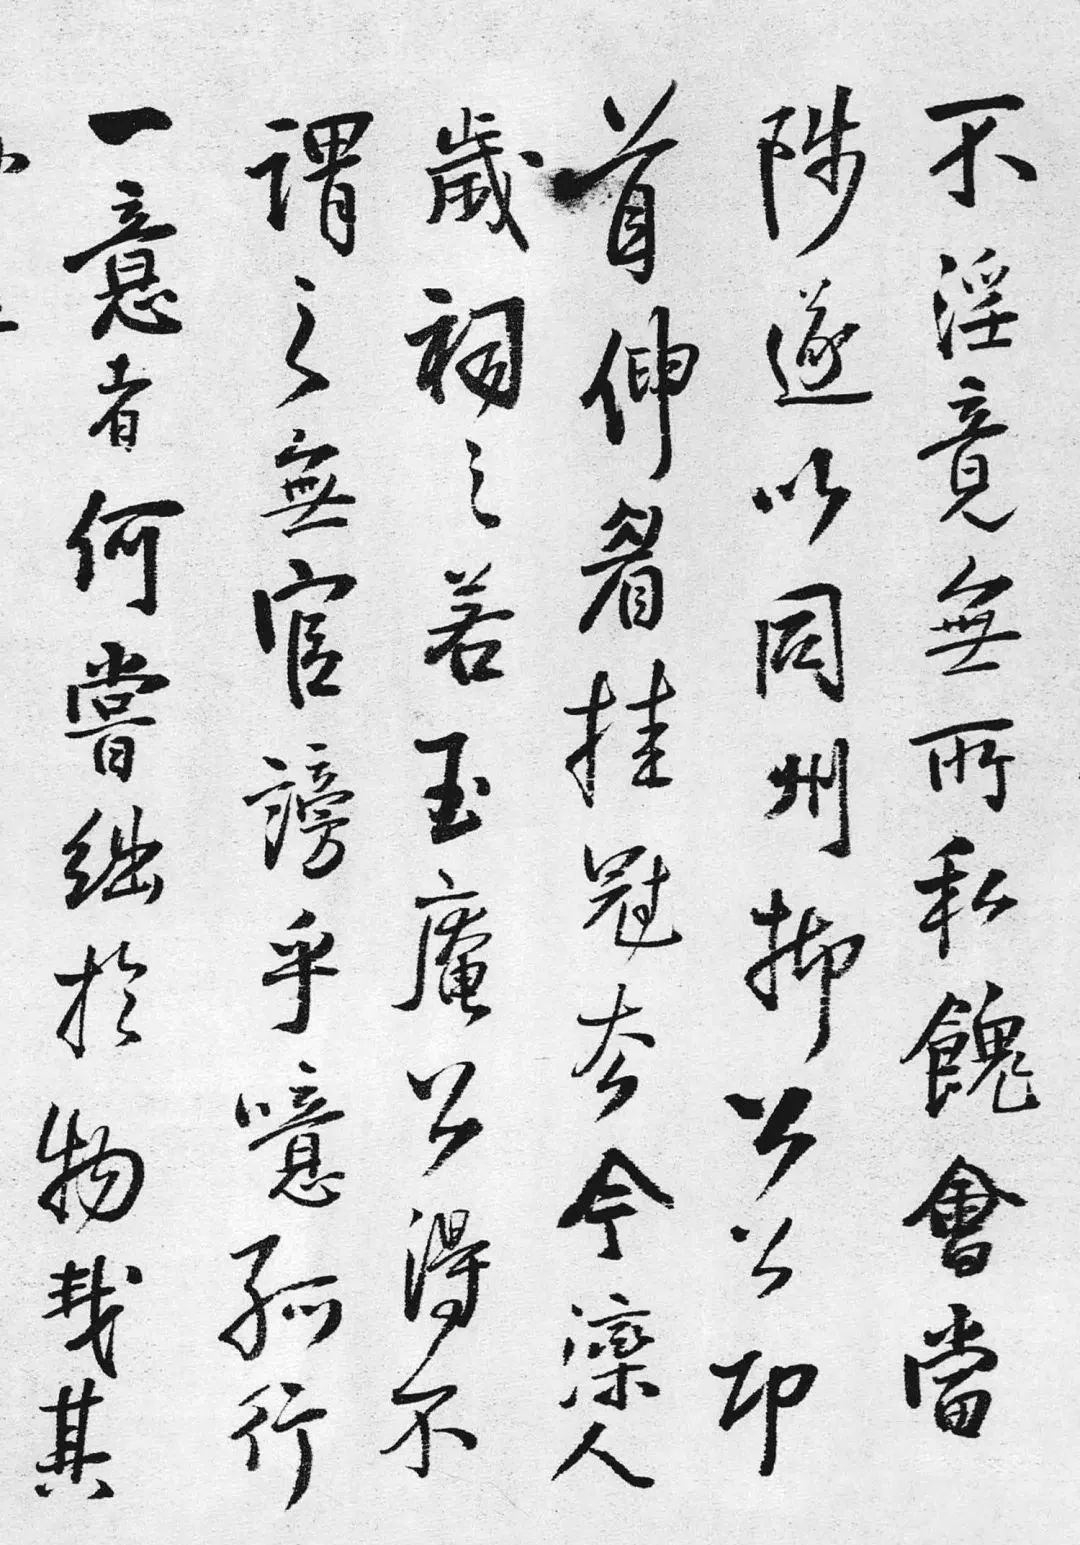 不淫竟無所私餽會當
陟遂以同州抑公公卬
首伸眉挂冠去今灤人
歲祠之若玉庵公得不
謂之無官謗乎噫孤行
一意者何嘗絀於物哉其